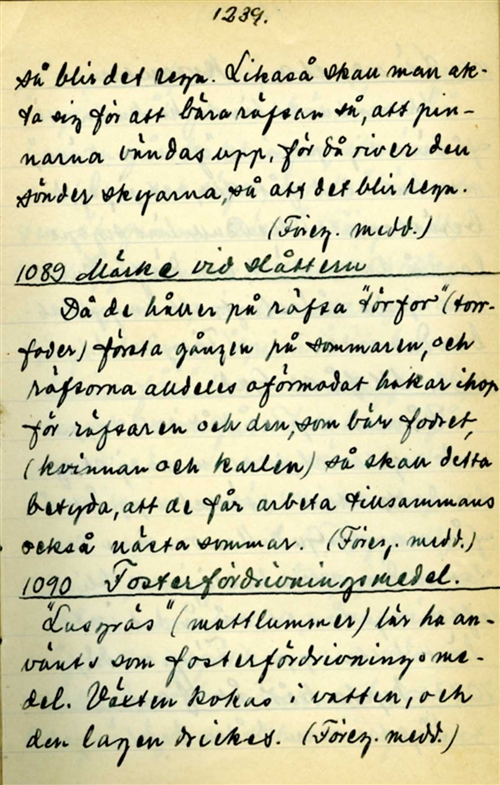 1239.
så blir det regn. Likaså skall man ak-
ta sig för att bära räfsan så, att pin-
narna vändas upp, för då river den
sönder skyarna, så att det blir regn.
(Föreg. medd.)
1089 Märke vid slåttern
Då de håller på räfsa "törfor" (torr-
foder) första gången på sommaren, och
räfsorna alldeles oförmodat hakar ihop
för räfsaren och den, som bär fodret,
(kvinnan och karlen) så skall detta
betyda, att de får arbeta tillsammans
också nästa sommar. (Föreg. medd.)
1090 Fosterfördrivningsmedel.
"Lusgräs" (mattlummer) lär ha an-
vänts som fosterfördrivningsme-
del. Växten kokas i vatten, och
den lagen drickes. (Föreg. medd.)